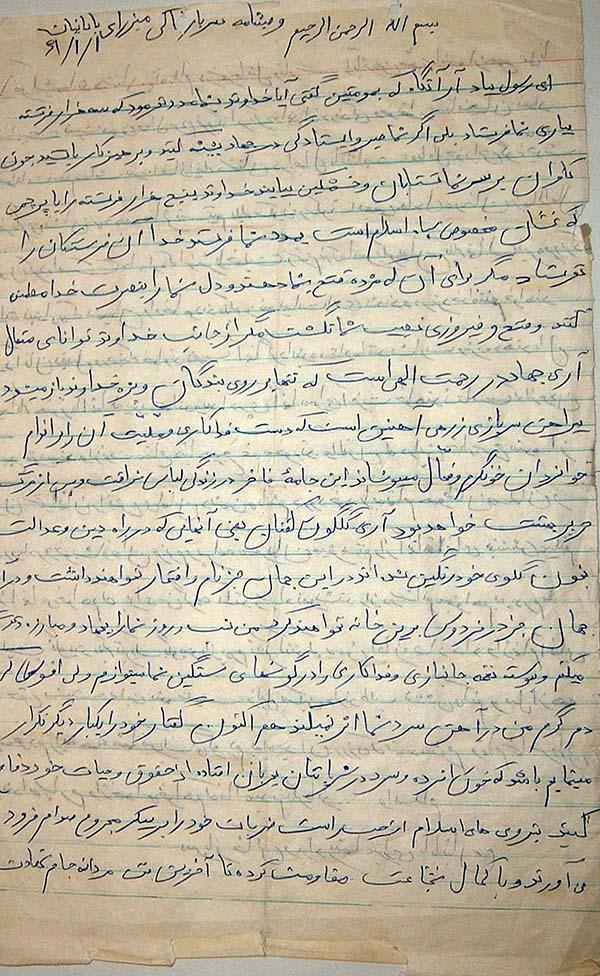 بسم الله الرحمن الرحیم وصیتنامه سرباز خاکی میرزای بابائیان ۶۱/۱/۱
ای رسول بیاد آر آنگاه که بمومنین گفتی آیا خداوند بشما مدد نفرمود که سه هزار فرشته
بیاری شما فرستاد بلی اگر شما صبر و ایستادگی در جهاد پیشه کنید و پرهیزکار باشید چون
کافران بر سر شما شتابان و خشمگین بیایند خداوند پنج هزار فرشته را با پرچمی
که نشان مخصوص سپاه اسلام است بمدد شما فرستد خدا آن فرشتگان را
نفرستاد مگر برای آن که مژده فتح بشما دهند و دل شما را بنصرت خدا مطمئن
کنند و فتح و فیروزی نصیب شما نگشت مگر از جانب خداوند توانای متعال
آری جهاد در رحمت الهی است که تنها بر روی بندگان ویژه خداوند باز میشود
پیراهن سربازی زرهی آهنین است که دست فداکاری و فعلیت آن را بر اندام
جوانمردان خونگرم و فعال میپوشاند این جامهٔ فاخر در زندگی لباس شرافت و پس از مرگ
حریر بهشت خواهد بود آری گلگون کفنان یعنی آنهایی که در راه دین و عدالت
بخون گلوی خود رنگین شده‌اند در این جهان جز نام و افتخار نخواهند داشت و در آن
جهان جز در فردوس برین خانه نخواهند کرد من شب و روز شما را بجهاد و مبارزه دعوت
میکنم و پیوسته نغمه جانبازی و فداکاری را در گوشهای سنگین شما مینوازم ولی افسوس که
دم گرم من در آهن سرد شما اثر نمیکند هم اکنون گفتار خود را یکبار دیگر تکرار
مینمایم باشد که خون افسرده و سرد در شریانتان بجریان افتاده از حقوق و حیات خود دفاع
کنید نیروی های اسلام ضربات خود را بر پیکر مجروح صدام فرود
می آورند و با کمال شجاعت مقاومت کرده تا آخرین نفس مردانه جام شهادت